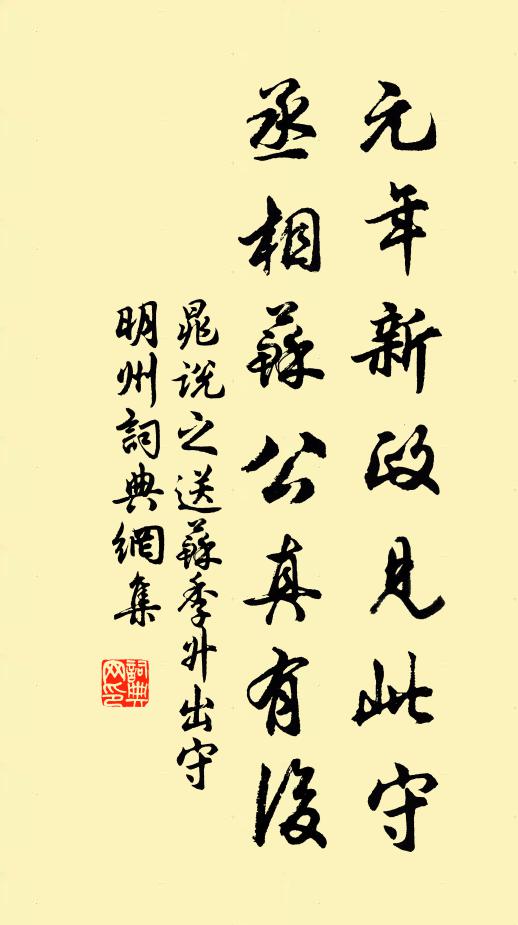 元年新政見此守
丞相蘇公真有後
晁說之送蘇季升出守
明州詞典網集
詞典网印